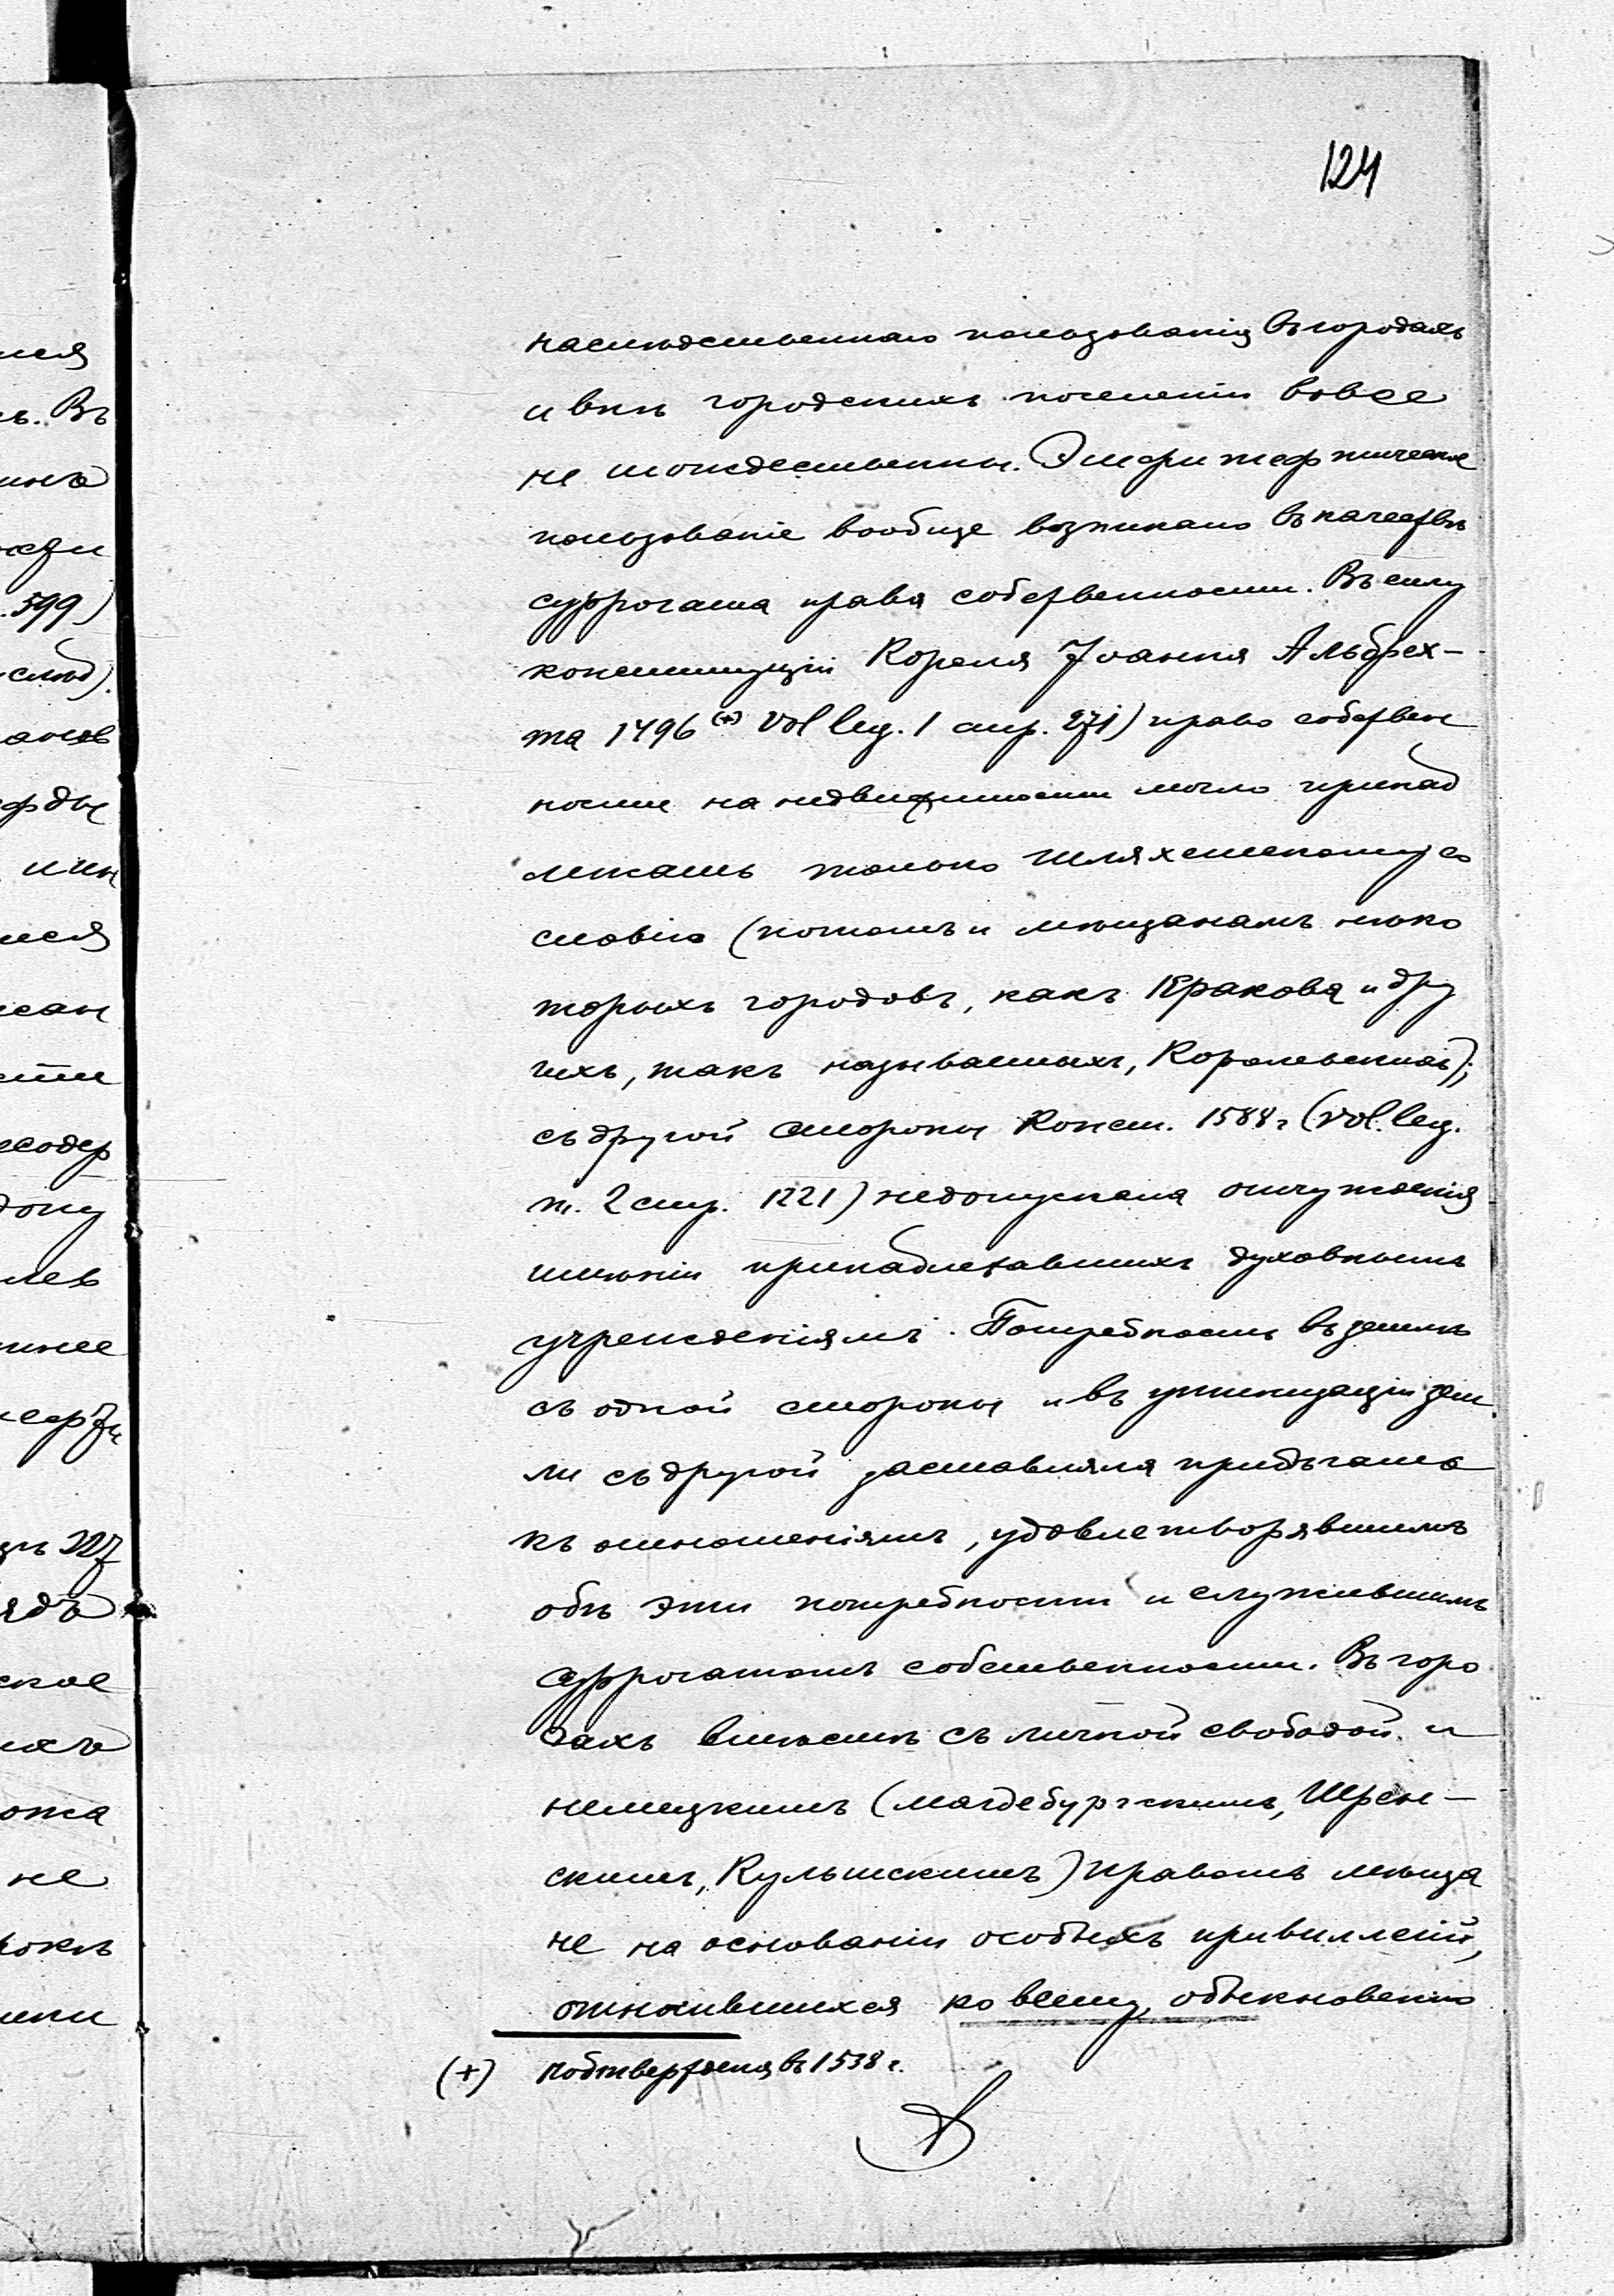 124
наслѣдственнаго пользованія въ городахъ
и внѣ городскихъ поселеній вовсе
не тождественны. Эмфитефтическое
пользованіе вообще возникало въ качествѣ
суррогата права собственности. Въ силу
конституціи Короля Іоанна Альбрех-
та 1496 (+) Vol leg. 1 стр. 271) право собствен
ности на недвижимости могло принад
лежать только шляхетскому со
словію (потомъ и мѣщанамъ нѣко
торыхъ городовъ, какъ Кракова и дру
гихъ, такъ называемыхъ, Королевскихъ);
съ другой стороны Конст. 1588 г (vol. leg.
т. 2 стр. 1221) недопускала отчужденія
имѣній принадлежавшихъ духовнымъ
учрежденіямъ. Потребность въ землѣ
съ одной стороны и въ утилизаціи зем
ли съ другой заставляла прибѣгать
къ отношеніямъ, удовлетворявшимъ
обѣ эти потребности и служившимъ
суррогатомъ собственности. Въ горо
дахъ вмѣстѣ съ личной свободой и
немецкимъ (магдебургскимъ, Шрен-
скимъ, Кульмскимъ) правомъ мѣща
не на основаніи особыхъ привиллегій,
относившихся ко всему, обыкновенно
(+) подтверждена въ 1538 г.
ися
ъ. Въ
599)
слѣд).
содер
дону
лев
227
ядъ
ское
ихъ
ота
не